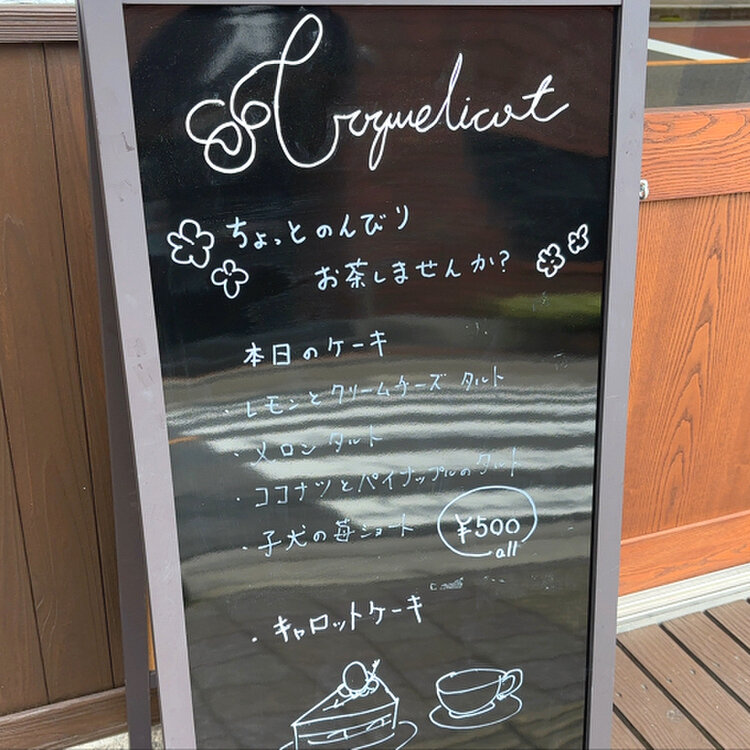 Coquelicot
ちょっとのんびり
お茶しませんか?
本日のケーキ
・レモンとクリームチーズ タルト
・メロンタルト
・ココナツとパイナップルのタルト
・子犬の苺ショート
¥500
all
・キャロットケーキ